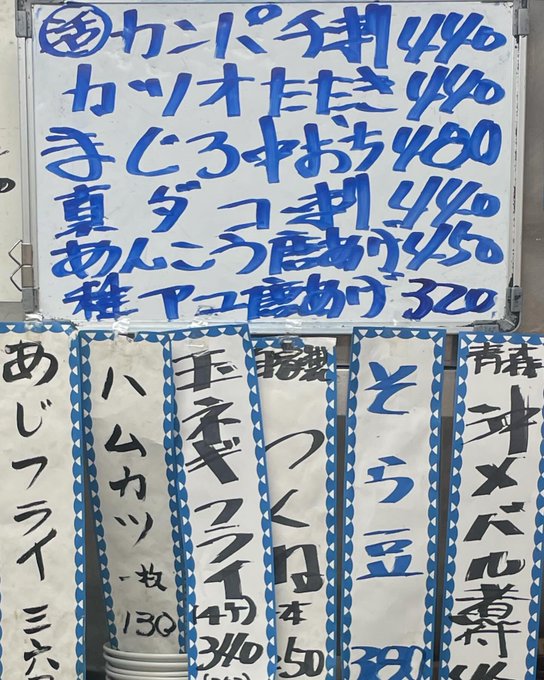 活カンパチ刺440
カツオたたき440
まぐろ中おち480
真ダコ刺440
あんこう唐あげ450
稚アユ唐あげ320
あじフライ 三六
ハムカツ 一枚 130
玉ネギフライ (4ケ) 340
自家製 つくね 本 50
そら豆 380
青森 沖メバル煮付